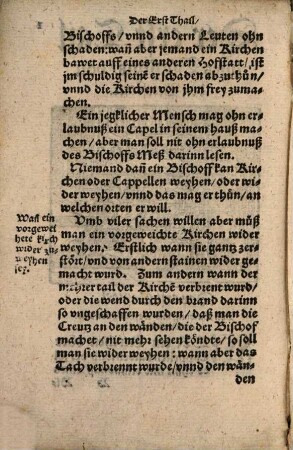 Der Erst Thail/
Bischoffs/ vnnd andern Leuten ohn
schaden: wañ aber jemand ein Kirchen
bawet auff eines anderen Hofstatt/ ist
jm schuldig seinẽ er schaden abzuthůn/
vnnd die Kirchen von jhm frey zuma-
chen.
Ein jegklicher Mensch mag ohn er-
laubnuß ein Capel in seinem hauß mach-
en/ aber man soll nit ohn erlaubnuß
des Bischoffs Meß darinn lesen.
Niemand dañ ein Bischoff kan Kir-
chen oder Cappellen weyhen/ oder wi-
der weyhen/ vnnd das mag er thůn/ an
welchen orten er will.
Wañ ein
vorgewey-
hete kirch
wider zu-
weyhen
sey.
Vmb viler sachen willen aber můß
man ein vorgeweichte Kirchen wider
weyhen. Erstlich wann sie gantz zer-
stört/ vnd von andern stainen wider ge-
macht wurd. Zum andern wann der
mehrer tail der Kirchẽ verbrent wurd/
oder die wend durch den brand darinn
so vngeschaffen wurden/ daß man die
Creutz an den wänden/ die der Bischof
machet/ nit mehr sehen köndte/ so soll
man sie wider weyhen: wann aber das
Tach verbrennt wurde/ vnnd den wän-
den